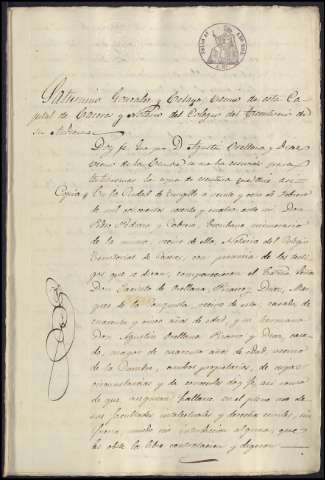 Saturnino Gonzalez y Celaya, vecino de esta Ca-
pital de Cáceres y Notario del Colegio del Territorio de
su Audiencia
Doy fe: que por D. Agustin Orellana y Diaz
vecino de la Cumbre se me ha para
testimoniar la que dice así
Copia En la Ciudad de Trugillo a veinte y ocho de Febrero
de mil ochocientos setenta y cuatro ante mi Don
Pedro Cabrera Escribano
de la misma vecino de ella Notario del Colegio
territorial de Cáceres, con presencia de los testi-
gos que se diran, comparecieron el Señor
Don Jacinto de Orellana Pizarro y Diaz, Mar-
ques de la Conquista, vecino de esta, casado, de
cuarenta y cinco años de edad, y su hermano
Don Agustin Orellana Pizarro y Diaz, casa-
do, mayor de cuarenta años de edad, vecino
de la Cumbre, ambos propietarios, de cuyas
circunstancias y de conocerles doy fe, asi como
de que, aseguran hallarse en el pleno uso de
sus facultades intelectuales y derechos civiles, sin
que
les obste la libre contratacion y digeron